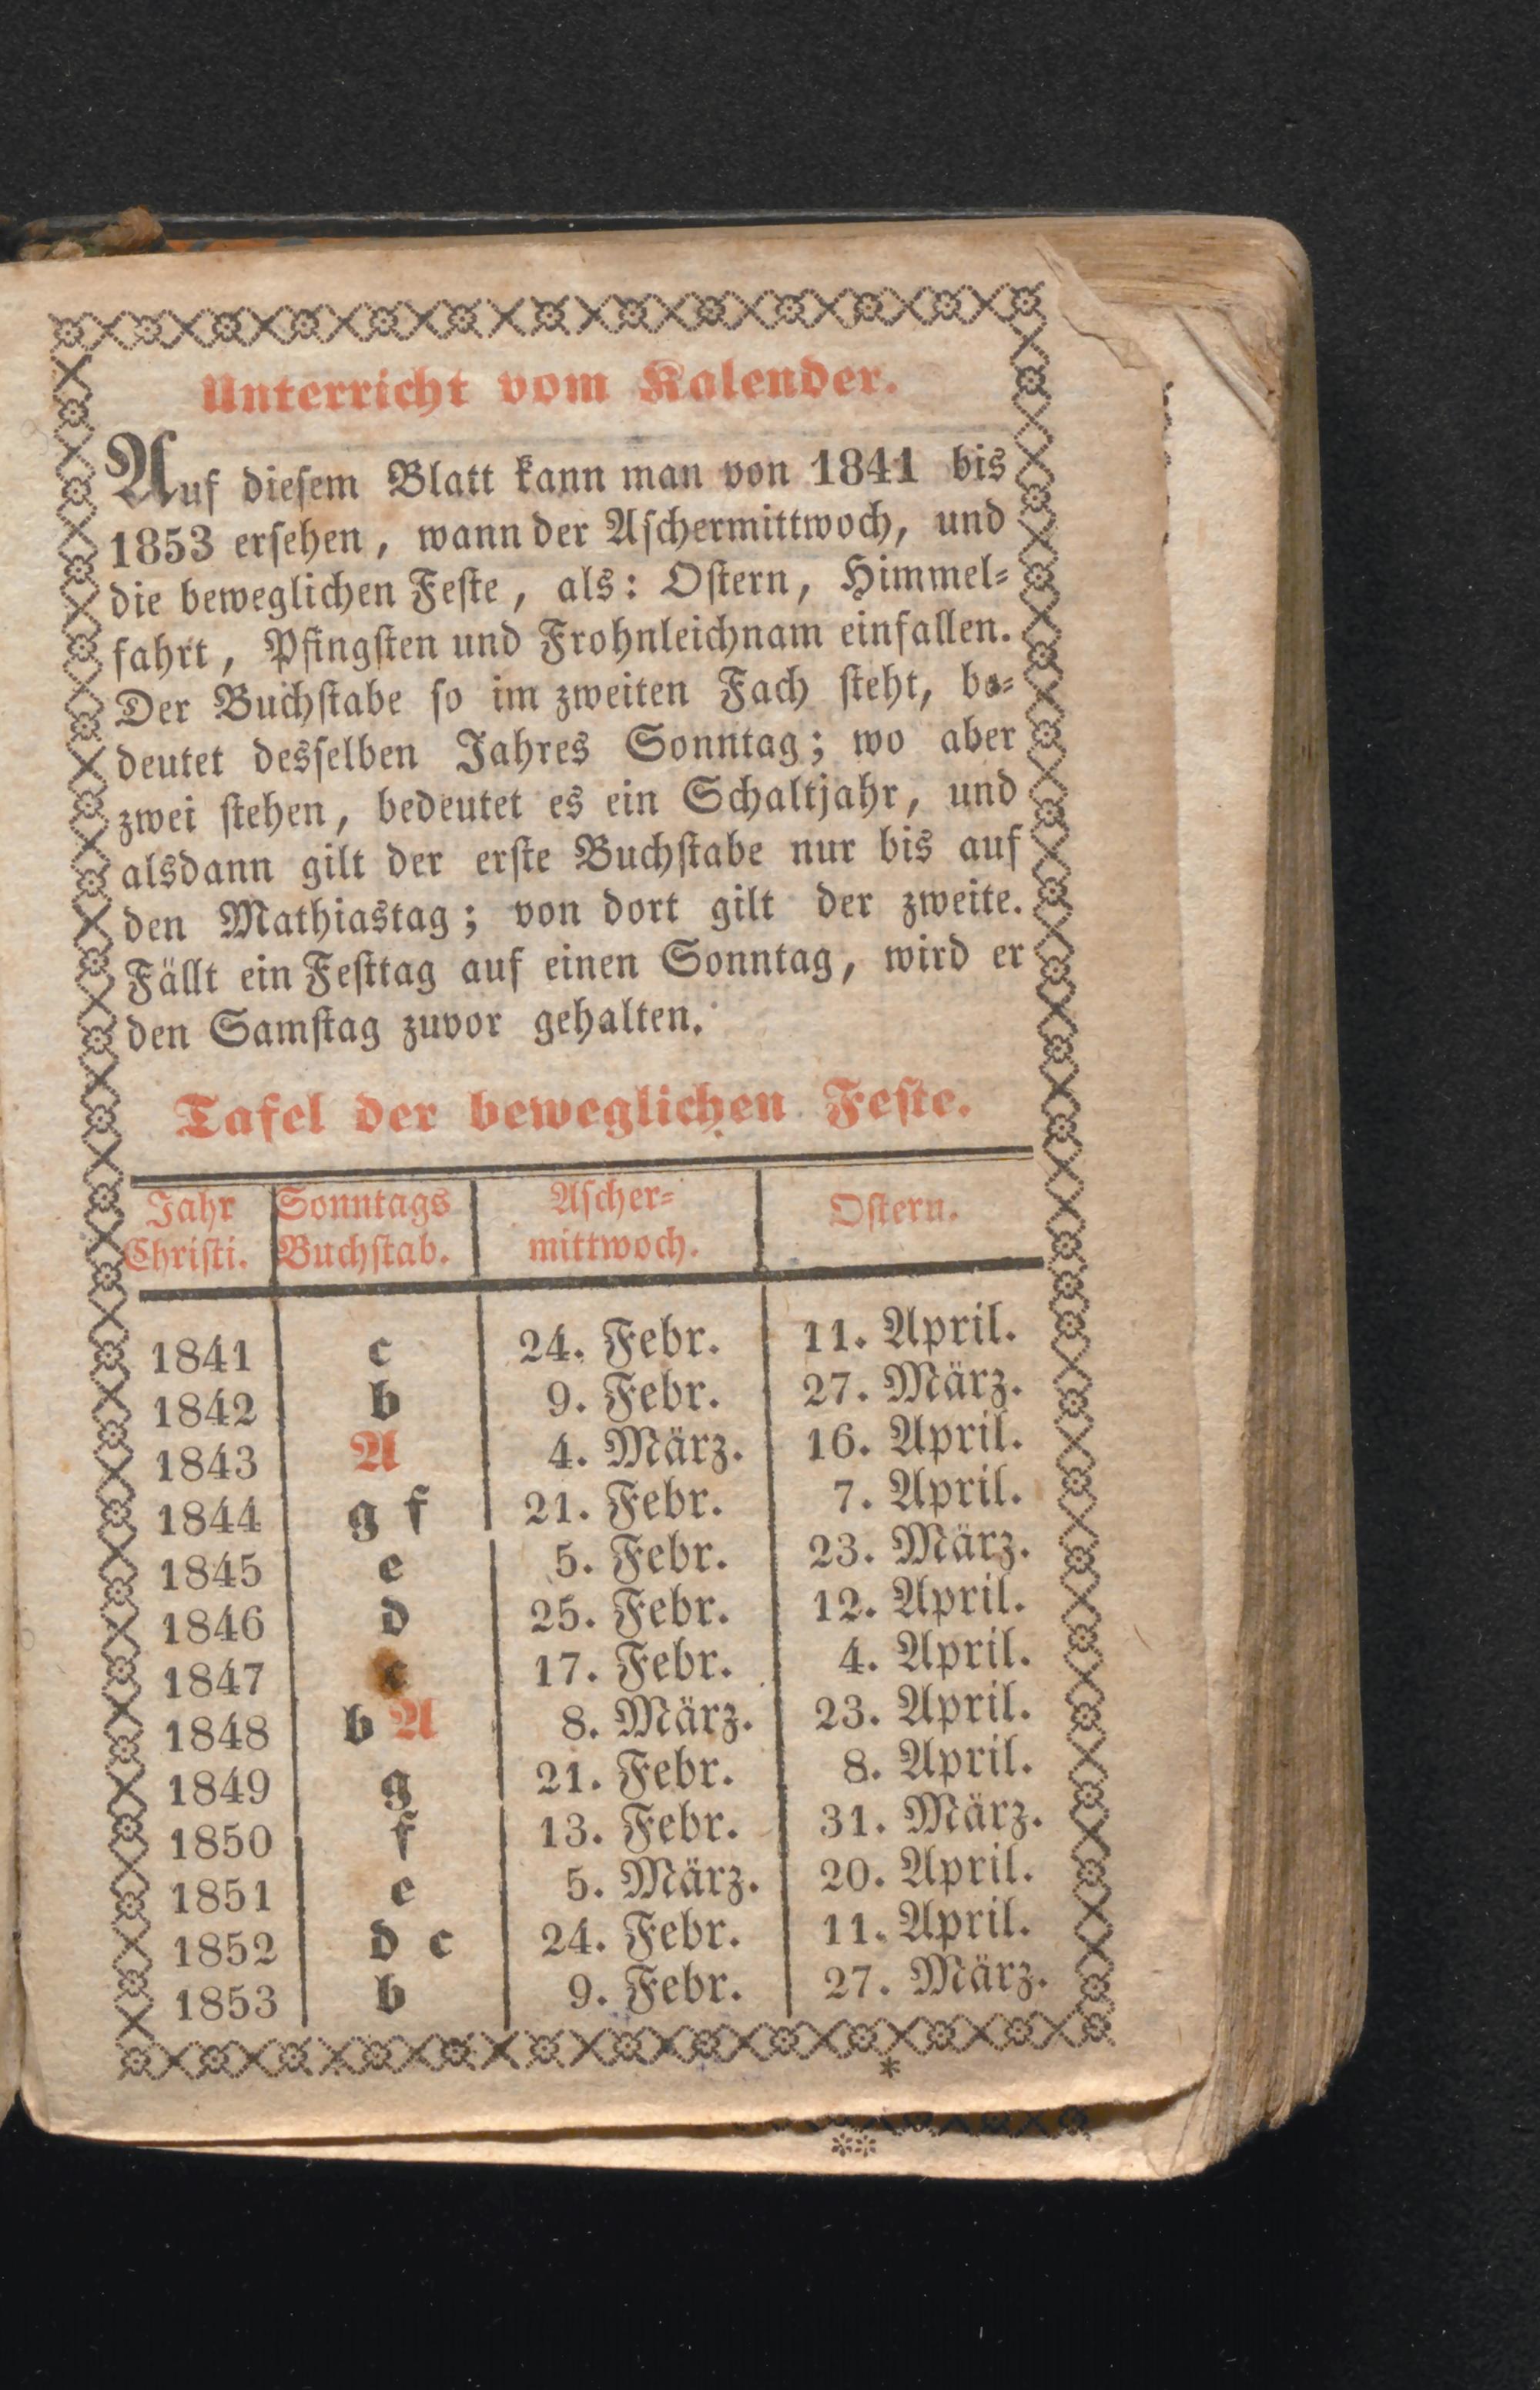 Unterricht vom Kalender.
Auf dieſem Blatt kann man von 1841 bis
1853 erſehen, wann der Aſchermittwoch, und
die beweglichen Feſte, als: Oſtern, Himmel⸗
fahrt, Pfingſten und Frohnleichnam einfallen.
Der Buchſtabe ſo im zweiten Fach ſteht, be⸗
deutet desſelben Jahres Sonntag; wo aber
zwei ſtehen, bedeutet es ein Schaltjahr, und
alsdann gilt der erſte Buchſtabe nur bis auf
den Mathiastag; von dort gilt der zweite.
Fällt ein Feſttag auf einen Sonntag, wird er
den Samſtag zuvor gehalten.
Tafel der beweglichen Feſte.
Jahr Sonntags Aſcher⸗ Oſtern.
Chriſti. Buchſtab. mittwoch.
1841 c 24. Febr. 11. April.
1842 b 9. Febr. 27. März.
1843 A 4. März. 16. April.
1844 g f 21. Febr. 7. April.
1845 e 5. Febr. 23. März.
1846 d 25. Febr. 12. April.
1847 c 17. Febr. 4. April.
1848 b A 8. März. 23. April.
1849 g 21. Febr. 8. April.
1850 f 13. Febr. 31. März.
1851 e 5. März. 20. April.
1852 d c 24. Febr. 11. April.
1853 b 9. Febr. 27. März.
*
**